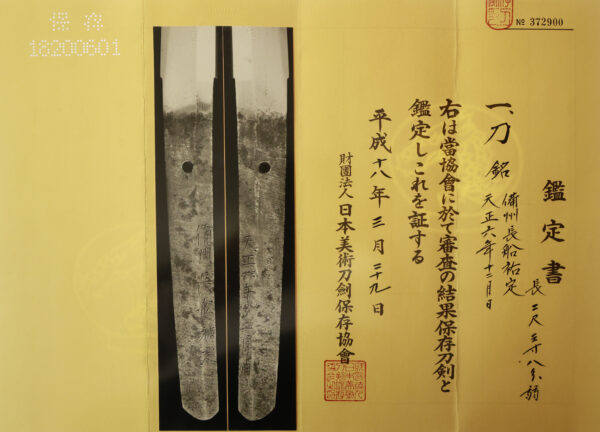 № 372900
鑑定書
一、刀 銘 備州長船祐定
天正六年十二月日
長二尺三寸八分弱
右は當協會に於て審査の結果保存刀剣と
鑑定しこれを証する
平成十八年三月二十九日
財團法人日本美術刀劍保存協會
保存
18200601